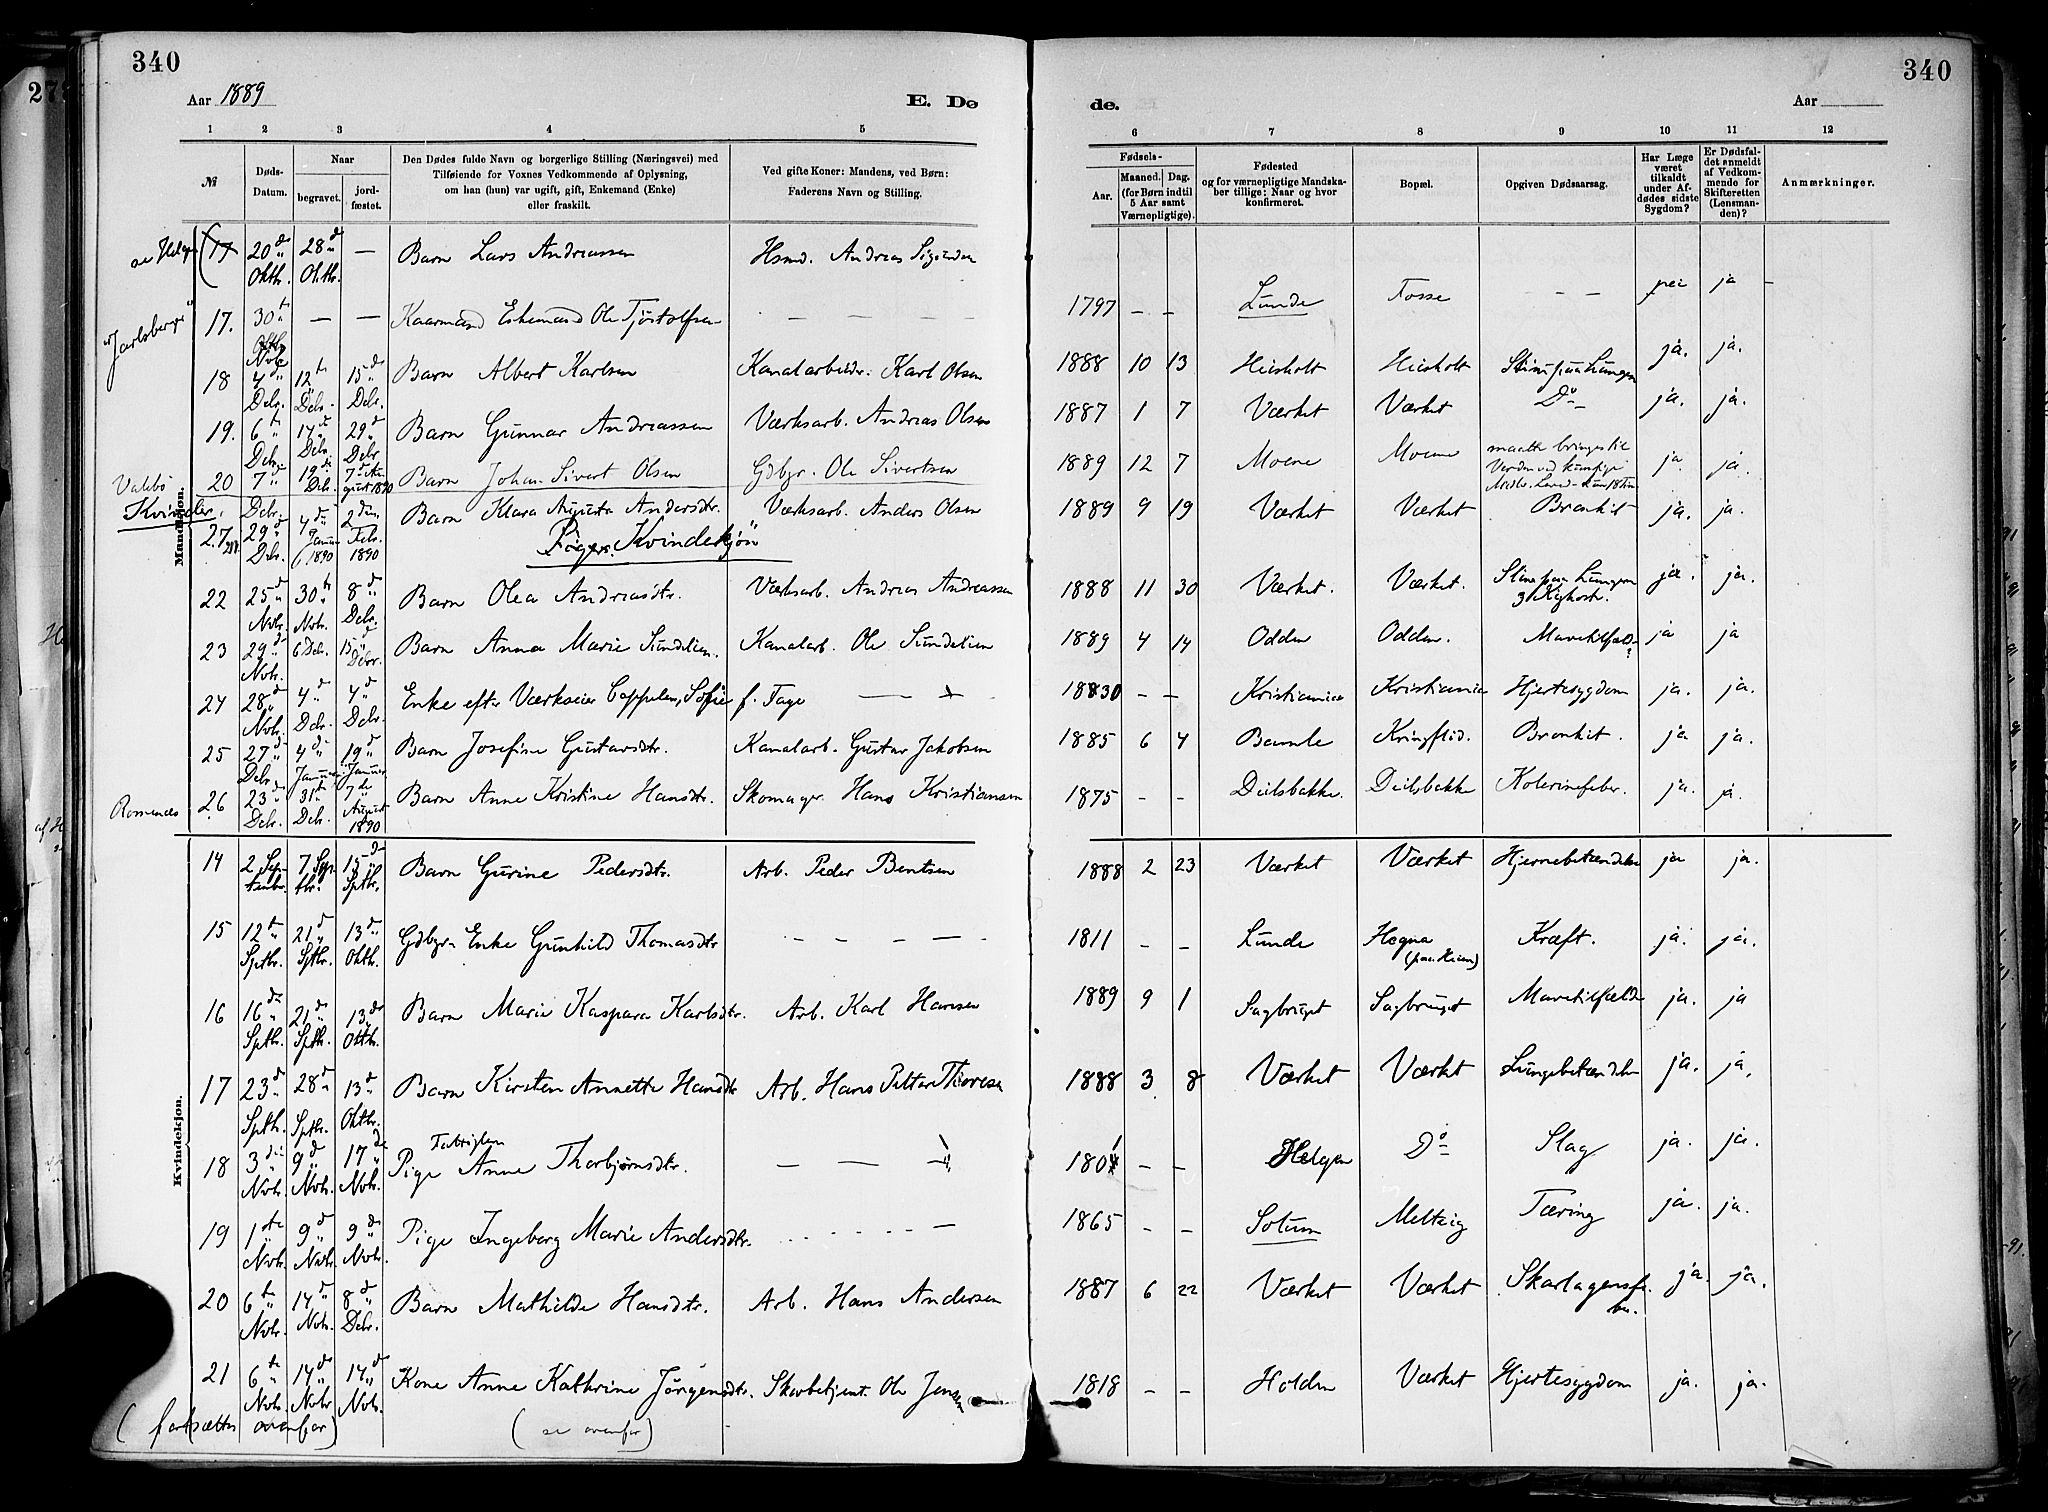 340
340
Aar 1889
E. Dø
de.
Aar
1 2 3 4 5 6 7 8 9 10 11 12
№
Døds-Datum.
Naar
begravet.
jord-fæstet.
Den Dødes fulde Navn og borgerlige Stilling (Næringsvei) med
Tilføiende for Voxnes Vedkommende af Oplysning,
om han (hun) var ugift, gift, Enkemand (Enke)
eller fraskilt.
Ved gifte Koner: Mandens, ved Børn:
Faderens Navn og Stilling.
Fødsels-
Aar.
Maaned. Dag.
(for Børn indtil
5 Aar samt
Værnepligtige).
Fødested
og for værnepligtige Mandska-
ber tillige: Naar og hvor
konfirmeret.
Bopæl.
Opgiven Dødsaarsag.
Har Læge
været
tilkaldt
under Af-
dødes sidste
Sygdom?
Er Dødsfal-
det anmeldt
af Vedkom-
mende for
Skifteretten
(Lensman-
den)?
Anmærkninger.
Mandkjøn.
se Helgen (17 20de Oktbr. 28de Oktbr. — Barn Lars Andreassen Hsmd. Andreas
"Jarlsberg" 17. 30te — — Kaarmand Enkemand Ole Tjøstolfsen — — — 1797 — — Lunde Fosse — — — nei ja —
18 4de Debr. 12te Debr. 15de Debr. Barn Albert Karlsen Kanalarbeider Karl Olsen 1888 10 13 Heisholt Heisholt Slim paa Lungen ja. ja.
19. 6te Debr. 17de Debr. 29de Debr. Barn Gunnar Andreassen Værksarb. Andreas Olsen 1887 1 7 Værket Værket Do ja. ja.
20 7de Debr. 19de Debr. 7de August 1890 Barn Johan Sivert Olsen Gdbgr. Ole Sivertsen 1889 12 7 Moene Moene maatte bringes til Verden ved ja ja.
Kvinder.
27 29de Debr. 4de Januar 1890 2den Febr. 1890 Barn Klara Augusta Andersdtr. Værksarb. Anders Olsen 1889 9 19 Værket Værket Bronkit ja. ja.
Kvindekjøn
22 25de Nvbr. 30te Nvbr. 8de Debr. Barn Olea Andreasdtr. Værksarb. Andreas Andreassen 1888 11 30 Værket. Værket. Slim paa Lungen Kighost. ja. ja.
23 29de Nvbr. 6 Debr. 15de Debr. Barn Anna Marie Sundelien. Kanalarb. Ole Sundelien 1889 4 14 Odden Odden. Mavetilfæld? ja ja
24 28de Nvbr. 4de Debr. 4de Debr. Enke efter Værkseier Cappelen, Sofie f. Fage — 1830 — — Kristiania Kristiania Hjertesygdom ja. ja.
25 27de Debr. 4de Januar 19de Januar Barn Josefine Gustavsdtr. Kanalarb. Gustav Jakobsen 1885 6 4 Bamle Kringflid. Bronkit. ja ja.
26 23de Debr. 31te Debr. 7de August 1890 Barn Anne Kristine Hansdtr. Skomager Hans Kristiansen 1875 — — Deilsbakke. Deilsbakke Kolerinefeber. ja. ja.
Kvindekjøn.
14 2 Septembr. 7 Septbr. 15de Sptbr. Barn Gurine Pedersdtr. Arb. Peder Bentsen 1888 2 23 Værket Værket Hjernebetændelse ja ja.
15 12te Sptbr. 21de Sptbr. 13de Oktbr. Gdbgr. Enke Gunhild Thomasdtr — — — — 1811 — — Lunde Hegna Kræft. ja. ja.
16 16de Sptbr. 21de Sptbr. 13de Oktbr. Barn Marie Kaspara Karlsdtr. Arb. Karl Hansen 1889 9 1 Sagbruget Sagbruget Mavetilfælde ja. ja
17 23de Sptbr. 28de Sptbr. 13de Oktbr. Barn Kirsten Annette Hansdtr Arb. Hans Petter Thoresen 1888 3 8 Værket Værket Lungebetændelse ja. ja.
18 3die Nvbr. 9de Nvbr. 17de Nvbr. Pige Fatriglem Anne Thorbjørnsdtr. — — — — — Helgen Do Slag ja. ja.
19 1ste Nvbr. 9de Nvbr. 9de Nvbr. Pige Ingeborg Marie Andersdtr. — 1865 — — Solum Meltzig Tæring ja. ja.
20 6te Nvbr. 14de Nvbr. 8de Debr. Barn Mathilde Hansdtr. Arb. Hans Andersen 1887 6 22 Værket Værket Skarlagensfeber. ja. ja.
21 6te Nvbr. 14de Nvbr 14de Nvbr. Kone Anne Kathrine Jørgensdtr. Skovbetjent Ole Jensen 1818 — — Holden Værket Hjertesygdom ja. ja.
(fortsættes ovenfor)
(se ovenfor)